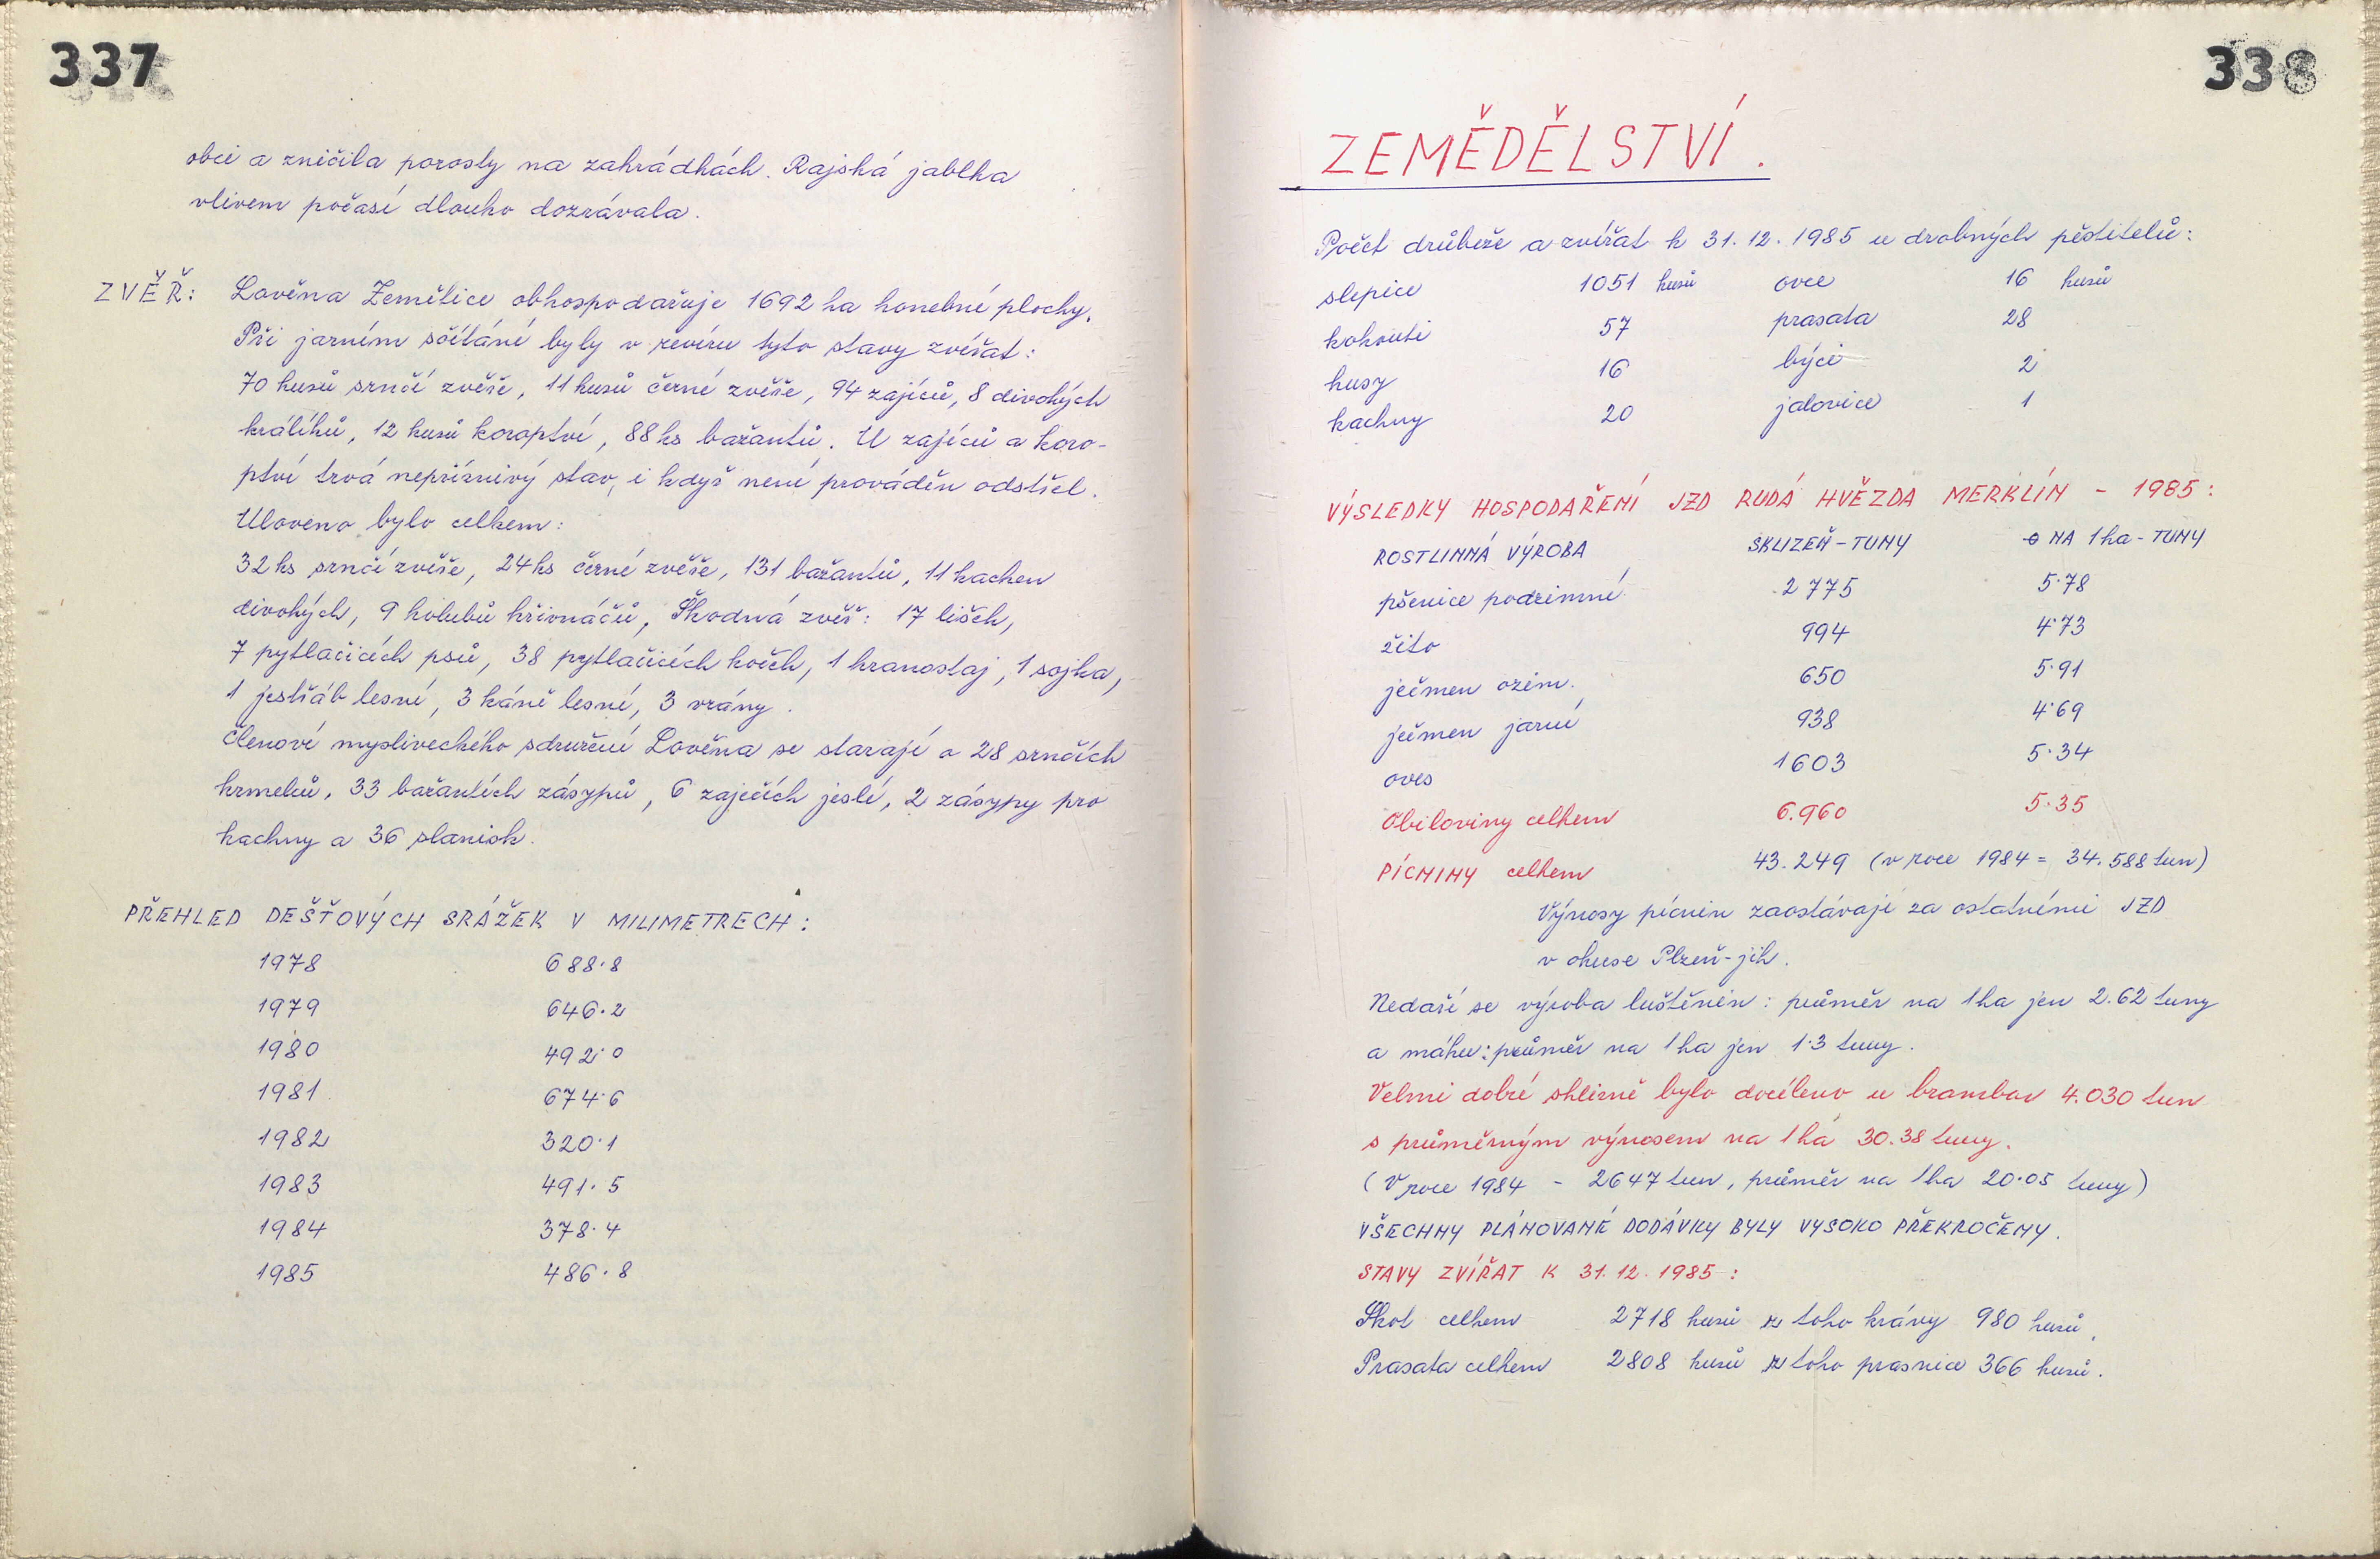 337
obci a zničila porosty na zahrádkách. Rajská jablka
vlivem počasí dlouho dozrávala.
ZVĚŘ: Lověna Zemětice obhospodařuje 1692 ha honebné plochy.
Při jarním sčítání byly v revíru tyto stavy zvířat:
70 kusů srnčí zvěře, 11 kusů černé zvěře, 94 zajíců, 8 divokých
králíků, 12 kusů koroptví, 88 ks bažantů. U zajíců a koro-
ptví trvá nepříznivý stav, i když není prováděn odstřel.
Uloveno bylo celkem:
32 ks srnčí zvěře, 24 ks černé zvěře, 131 bažantů, 11 kachen
divokých, 9 holubů hřivnáčů, Škodná zvěř: 17 lišek,
7 pytlačících psů, 38 pytlačících koček, 1 hranostaj, 1 sojka,
1 jestřáb lesní, 3 káně lesní, 3 vrány.
Členové mysliveckého sdružení Lověna se starají o 28 srnčích
krmelců, 33 bažantích zásypů, 6 zaječích jeslí, 2 zásypy pro
kachny a 36 slanisk.
PŘEHLED DEŠŤOVÝCH SRÁŽEK V MILIMETRECH:
1978 688.8
1979 646.2
1980 492.0
1981 674.6
1982 320.1
1983 491.5
1984 378.4
1985 486.8
338
ZEMĚDĚLSTVÍ.
Počet drůbeže a zvířat k 31.12.1985 u drobných pěstitelů:
slepice 1051 kusů ovce 16 kusů
kohouti 57 prasata 28
husy 16 býci 2
kachny 20 jalovice 1
VÝSLEDKY HOSPODAŘENÍ JZD RUDÁ HVĚZDA MERKLÍN - 1985:
ROSTLINNÁ VÝROBA SKLIZEŇ - TUNY ⌀ NA 1 ha - TUNY
pšenice podzimní 2 775 5.78
žito 994 4.73
ječmen ozim. 650 5.91
ječmen jarní 938 4.69
oves 1603 5.34
Obiloviny celkem 6.960 5.35
PÍCNINY celkem 43.249 (v roce 1984 = 34.588 tun)
Výnosy pícnin zaostávají za ostatními JZD
v okrese Plzeň-jih.
Nedaří se výroba luštěnin: průměr na 1 ha jen 2.62 tuny
a máku: průměr na 1 ha jen 1.3 tuny.
Velmi dobré sklizně bylo docíleno u brambor 4.030 tun
s průměrným výnosem na 1 ha 30.38 tuny.
(V roce 1984 - 2647 tun, průměr na 1 ha 20.05 tuny)
VŠECHNY PLÁNOVANÉ DODÁVKY BYLY VYSOKO PŘEKROČENY.
STAVY ZVÍŘAT K 31.12.1985:
Skot celkem 2718 kusů z toho krávy 980 kusů.
Prasata celkem 2808 kusů z toho prasnice 366 kusů.